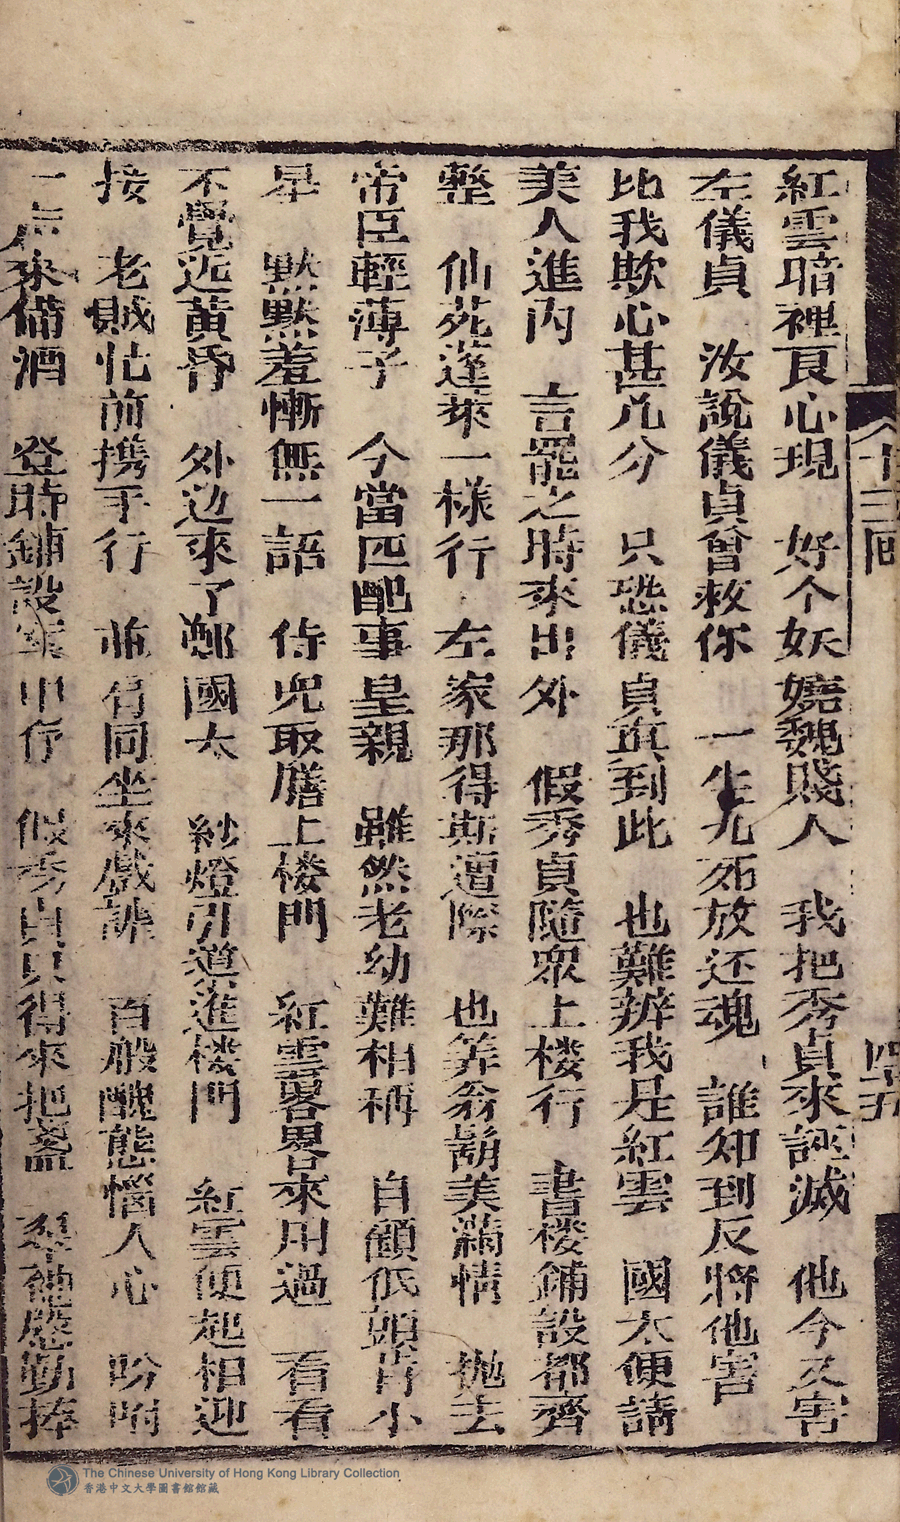 十三回 四十九
紅雲暗裡良心現 好个妖嬈魏賤人 我把秀貞來誣滅 他今又害
左儀貞 汝說儀貞曾救你 一生九死放还魂 誰知到反將他害
比我欺心甚几分 只恐儀貞真到此 也難辨我是紅雲 國太便請
美人進內 言罷之時來出外 假秀貞隨眾上楼行 書楼鋪設都齊
整 仙苑蓬萊一樣行 左家那得斯遭際 也筭翁鬍美滿情 拋去
帝臣輕薄子 今當匹配事皇親 雖然老幼難相稱 自顧低頭肯小
星 黙黙羞慚無一語 侍児取膳上楼門 紅雲畧畧來用過 看看
不覺近黃昏 外边來了鄭國太 紗燈引導進楼門 紅雲便起相迎
接 老賊忙前携手行 並肩同坐來戲謔 百般醜態惱人心 吩咐
一声來備酒 登時鋪設在中存 假秀貞只得來把盞 翠袖慇勤捧
The Chinese University of Hong Kong Library Collection
香港中文大學圖書館館藏